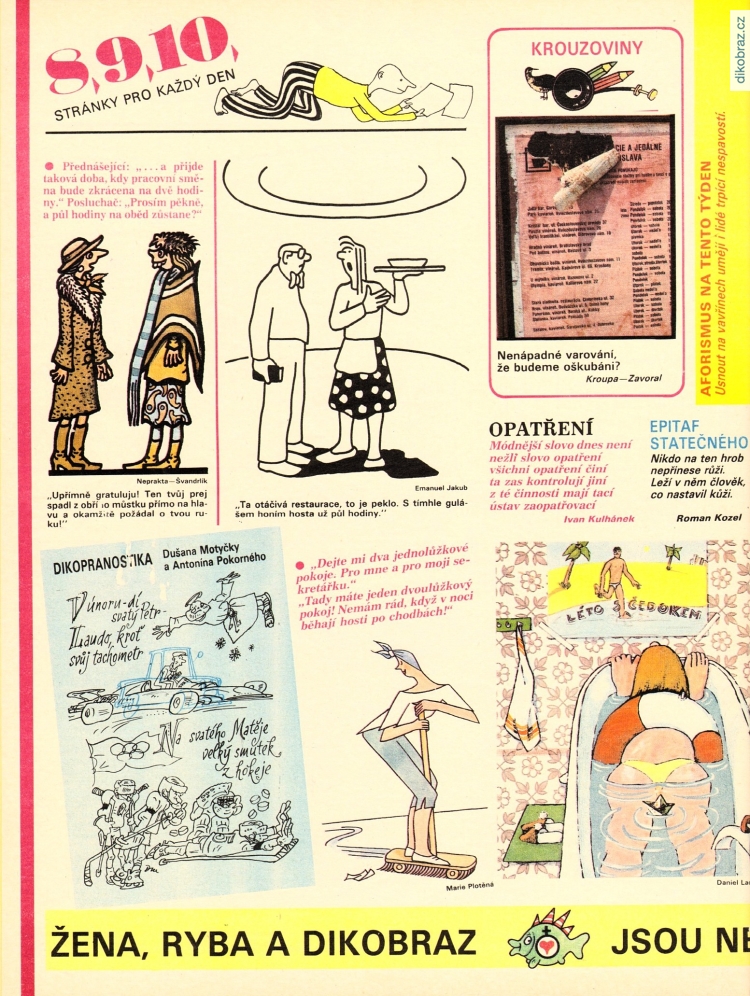 8,9,10,
STRÁNKY PRO KAŽDÝ DEN
KROUZOVINY
dikobraz.cz
● Přednášející: „...a přijde
taková doba, kdy pracovní smě-
na bude zkrácena na dvě hodi-
ny.“ Posluchač: „Prosím pěkně,
a půl hodiny na oběd zůstane?“
Neprakta—Švandrlík
„Upřímně gratuluji! Ten tvůj prej
spadl z obřího můstku přímo na hla-
vu a okamžitě požádal o tvou ru-
ku!“
Emanuel Jakub
„Ta otáčivá restaurace, to je peklo. S tímhle gulá-
šem honím hosta už půl hodiny.“
CIE A JEDÁLNE
Nenápadné varování,
že budeme oškubáni?
Kroupa—Zavoral
AFORISMUS NA TENTO TÝDEN
Usnout na vavřínech umějí i lidé trpící nespavostí.
OPATŘENÍ
Módnější slovo dnes není
nežli slovo opatření
všichni opatření činí
ta zas kontrolují jiní
z té činnosti mají tací
ústav zaopatřovací
Ivan Kulhánek
EPITAF
STATEČNÉHO
Nikdo na ten hrob
nepřinese růži.
Leží v něm člověk,
co nastavil kůži.
Roman Kozel
DIKOPRANOSTIKA
Dušana Motyčky
a Antonína Pokorného
V únoru-dí
svatý Petr-
Laudo, kroť
svůj tachometr
Na svatého Matěje
velký smutek
z hokeje
● „Dejte mi dva jednolůžkové
pokoje. Pro mne a pro moji se-
kretářku.“
„Tady máte jeden dvoulůžkový
pokoj! Nemám rád, když v noci
běhají hosti po chodbách!“
Marie Plotěná
LÉTO S ČEDOKEM
Daniel La
ŽENA, RYBA A DIKOBRAZ
JSOU NE